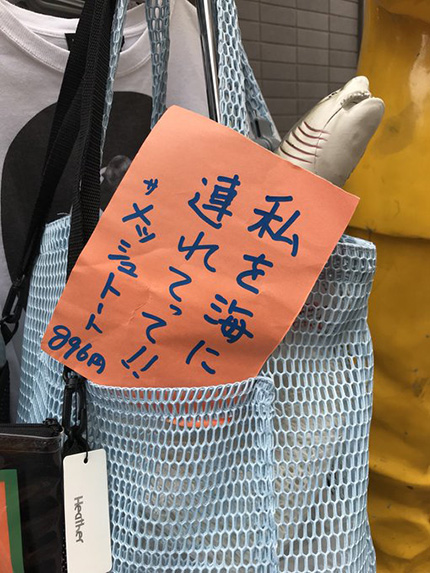 私を海に
連れてって!!
〃メッシュトート
896円
Heather